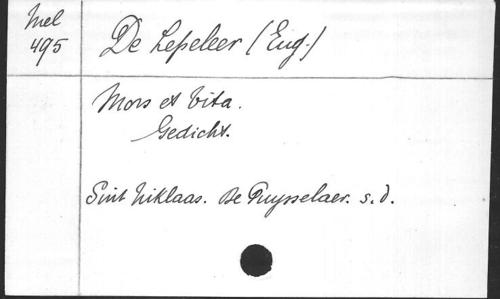 Mel
495
De Lepeleer (Eug.)
Mors et Vita.
Gedicht.
Sint Niklaas. De Puysselaer. s.d.